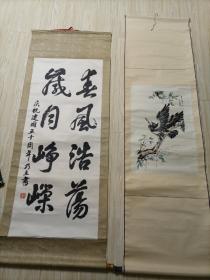 春風浩蕩
歲月崢嶸
庆祝建国五十周年